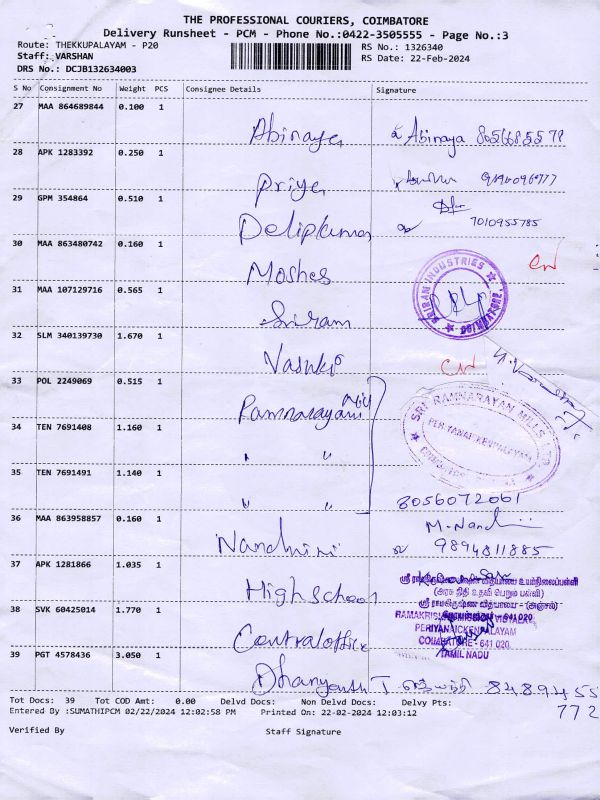 THE PROFESSIONAL COURIERS, COIMBATORE
Delivery Runsheet - PCM - Phone No.:0422-3505555 - Page No.:3
Route: THEKKUPALAYAM - P20
RS No.: 1326340
Staff: VARSHAN
RS Date: 22-Feb-2024
DRS No.: DCJB132634003
S No Consignment No Weight PCS Consignee Details Signature
27 MAA 864689844 0.100 1
Abinaya Abinaya
28 APK 1283392 0.250 1
Priya
29 GPM 354864 0.510 1
Delipkumar 7010955785
30 MAA 863480742 0.160 1
Moshes
31 MAA 107129716 0.565 1
SRIRAM INDUSTRIES
COIMBATORE
Sriram
32 SLM 340139730 1.670 1
Vasuki
33 POL 2249069 0.515 1
Ramnarayan Mill
SRI RAMNARAYAN MILLS LTD
PERIYANAICKENPALAYAM
34 TEN 7691408 1.160 1
" "
35 TEN 7691491 1.140 1
" " 8056072061
36 MAA 863958857 0.160 1
M. Nandhini
Nandhini 9894811885
37 APK 1281866 1.035 1
ஸ்ரீ ராமகிருஷ்ண வித்யாலய உயர்நிலைப்பள்ளி
(அரசு நிதி உதவி பெறும் பள்ளி)
High school
ஸ்ரீ ராமகிருஷ்ண வித்யாலய - (அஞ்சல்)
38 SVK 60425014 1.770 1
641 020
RAMAKRISHNA MISSION VIDYALAYA
PERIYANAICKENPALAYAM
COIMBATORE - 641 020
TAMIL NADU
Central office
39 PGT 4578436 3.050 1
Dhanyanth T 8489455
772
Tot Docs: 39 Tot COD Amt: 0.00 Delvd Docs: Non Delvd Docs: Delvy Pts:
Entered By :SUMATHIPCM 02/22/2024 12:02:58 PM Printed On: 22-02-2024 12:03:12
Verified By Staff Signature